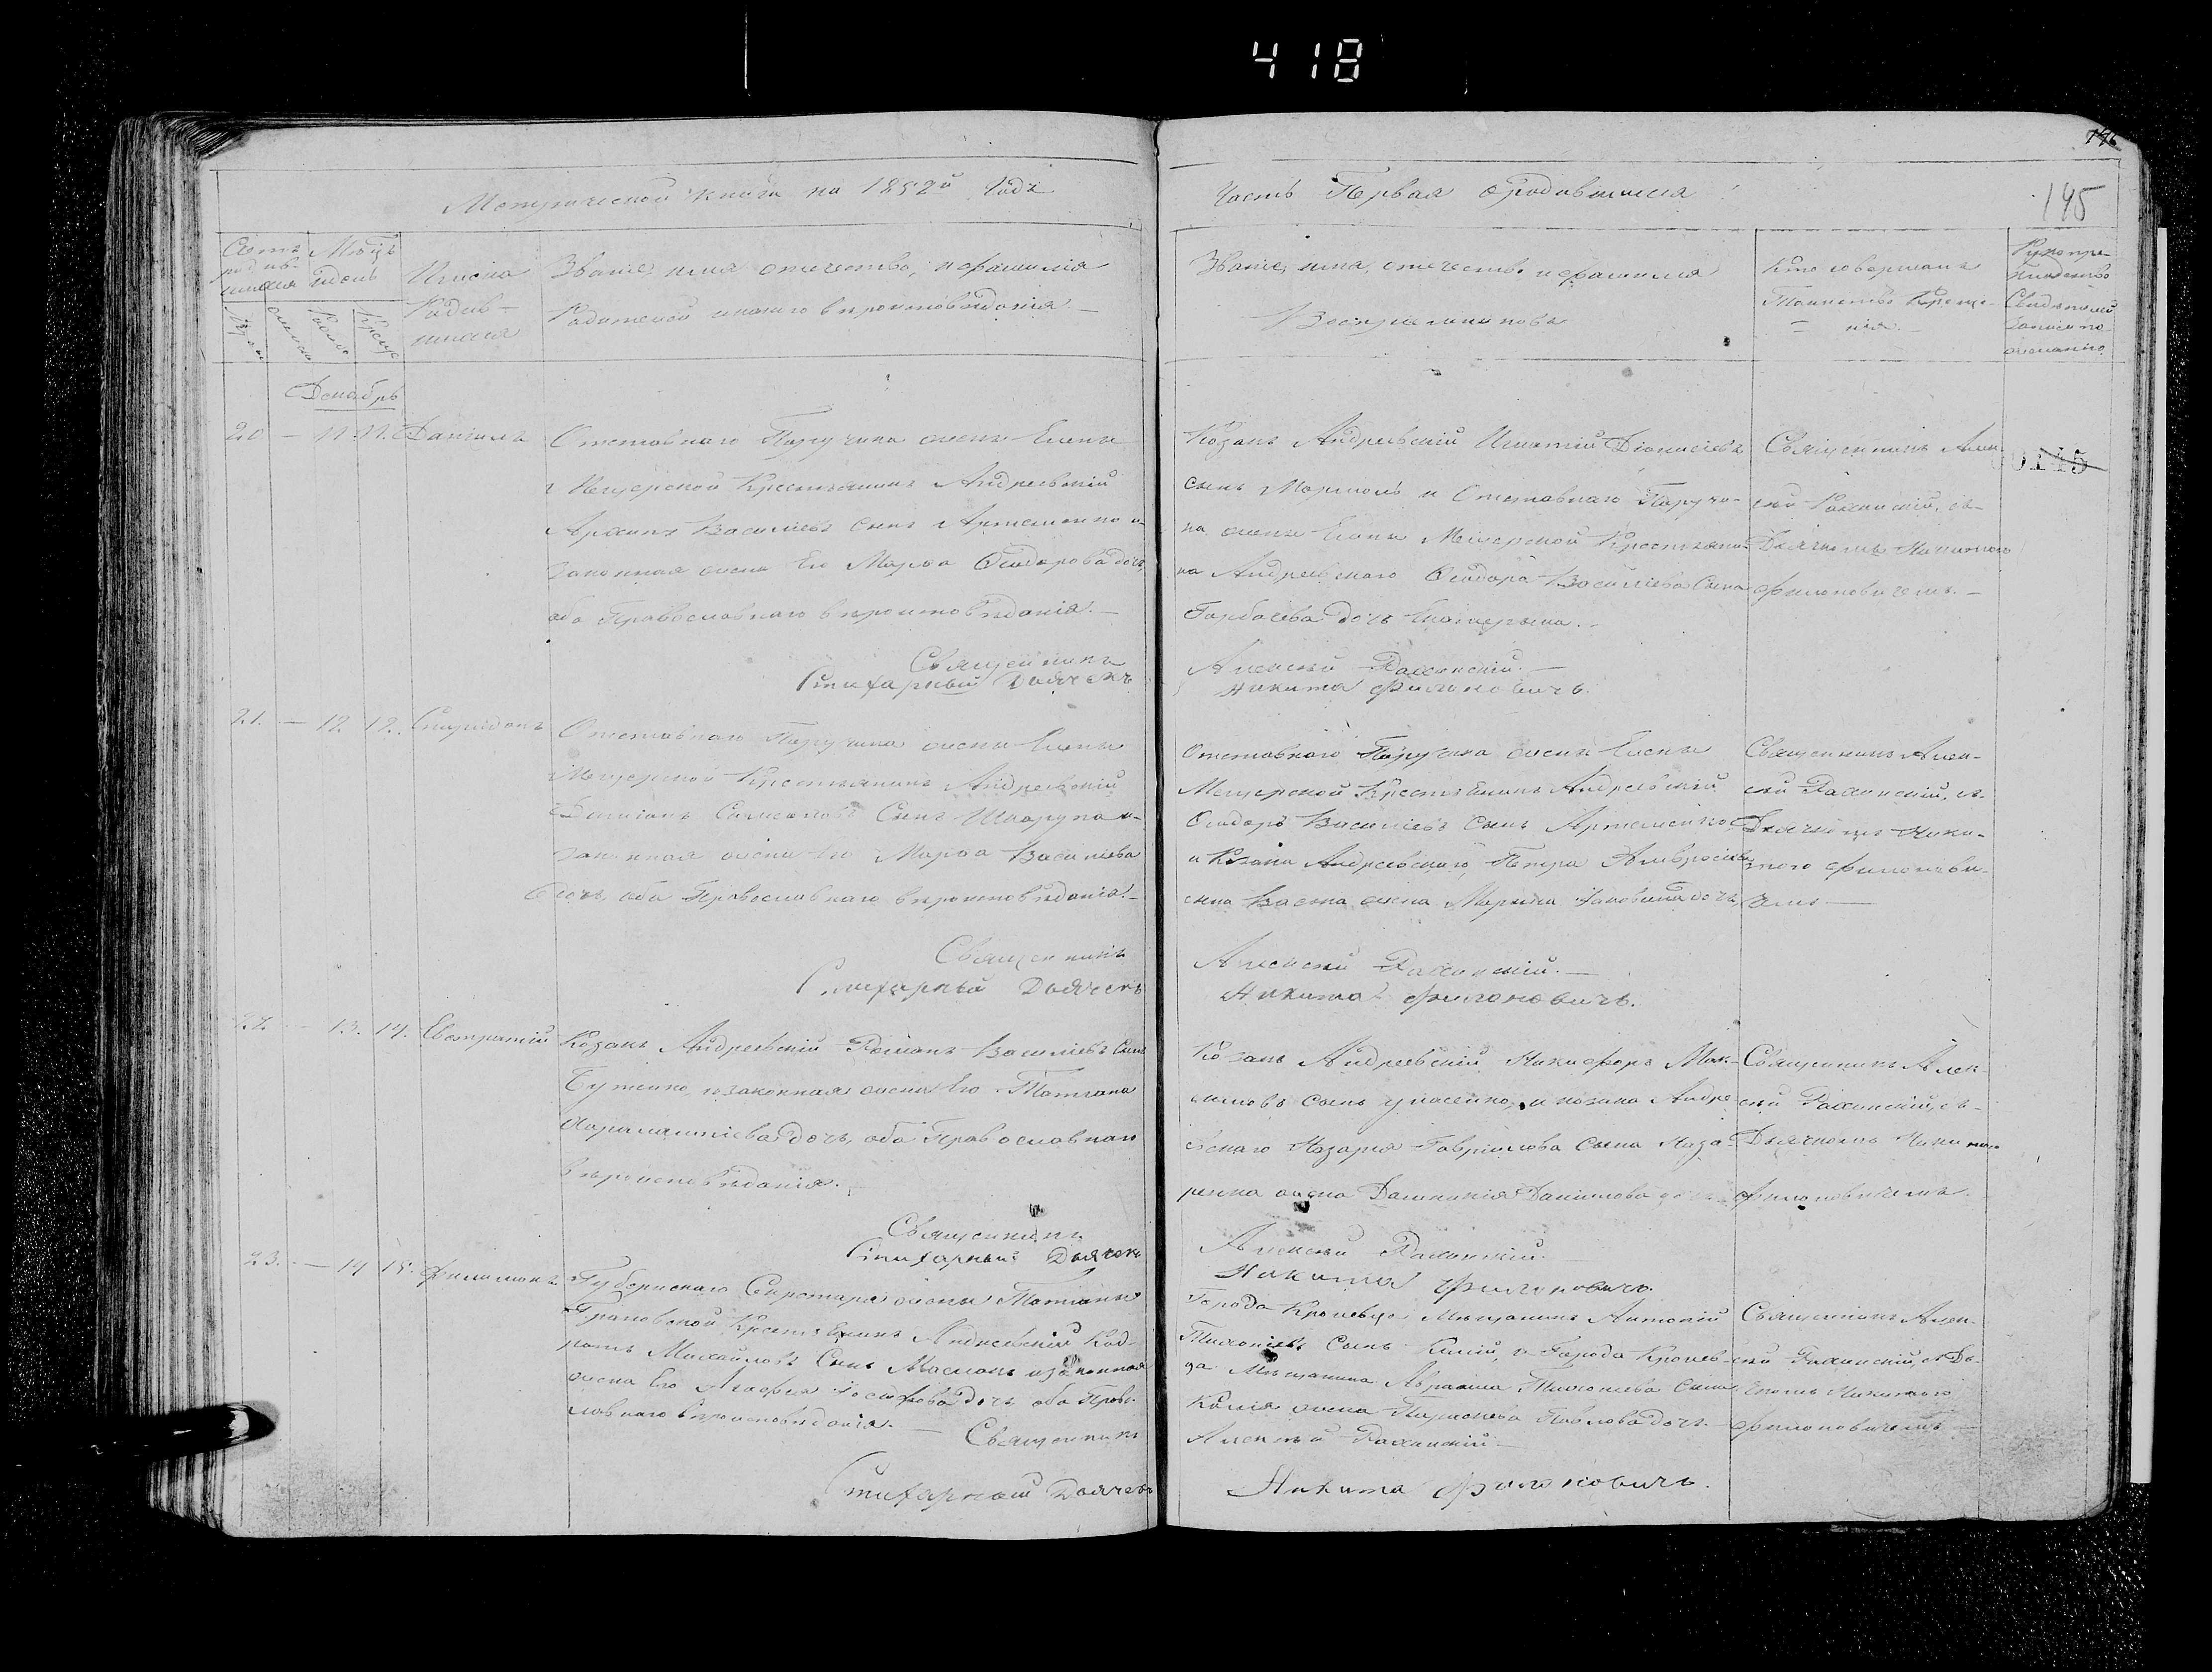 418
146
Метрической книги на 1852й годъ
Часть Первая о родившихся
145
Счетъ родив-
шихся
Мѣсяцъ
и день
Имена
Родив-
шихся
Званіе, имя, отечество, и фамилія
Родителей и какого вѣроисповѣданія —
Званіе, имя, отечество и фамилія
Воспріемниковъ
Кто совершалъ
Таинство Креще-
= нія. —
Рукопри-
кладство
Свидѣтелей
записи по
желанію
Декабрь
20 — 11. 11. Даніилъ
Отставнаго Поручика жены Елены
Мещерской Крестьянинъ Андреевскій
Архипъ Василіевъ Сынъ Артеменко и
законная жена Его Марѳа Ѳеодорова дочь,
оба Православнаго вѣроисповѣданія. —
Священникъ
Стихарный Дьячекъ
Козакъ Андреевскій Игнатій Діонисіевъ
сынъ и Отставнаго Поручи-
ка жены Елены Мещерской Крестьяни-
на Андреевскаго Ѳеодора Василіева Сына
Горбачева дочь Екатерина. —
Алексѣй Рахинскій. —
Никита Филоновичъ.
Священникъ Алек-
сѣй Рахинскій, съ
Дьячкомъ Никитою
Филоновичемъ. —
00145
21. — 12 12. Спиридонъ
Отставнаго Поручика жены Елены
Мещерской Крестьянинъ Андреевскій
Даміанъ Сынъ и
законная жена Его Марѳа Василіева
дочь, оба Православнаго вѣроисповѣданія. —
Священникъ
Стихарный Дьячекъ
Отставнаго Поручика жены Елены
Мещерской Крестьянинъ Андреевскій
Ѳеодоръ Василіевъ Сынъ Артеменко
и Козака Андреевскаго, Петра Амвросіева
сына жена Марина дочь,
Алексѣй Рахинскій. —
Никита Филоновичъ.
Священникъ Алек-
сѣй Рахинскій, съ
Дьячкомъ Ники-
тою Филонови-
чемъ —
22. — 13. 14. Евстратій
Козакъ Андреевскій Романъ Василіевъ Сынъ
Бутенко, и законная жена Его Татіана
Харалампіева дочь, оба Православнаго
вѣроисповѣданія.
Священникъ
Стихарный Дьячекъ
Козакъ Андреевскій Никифоръ Мак-
симовъ Сынъ и козака Андре-
евскаго Назарія Гавріилова Сына Наза-
ренка жена Даниилова дочь
Алексѣй Рахинскій.
Никита Филоновичъ.
Священникъ Алек-
сѣй Рахинскій, съ
Дьячкомъ Никитою
Филоновичемъ.
23. — 14 15. Филимонъ
Губернскаго Секретаря жены Татіаны
Крестьянинъ Андреевскій Код-
ратъ Михайловъ Сынъ и законная
жена Его Агафія Іосифова дочь оба Право-
славнаго вѣроисповѣданія. —
Священникъ
Стихарный Дьячекъ
Города Кролевца Мѣщанинъ Антоній
Сынъ и Города Кролев-
ца Мѣщанина Авраама Сына
жена Павлова дочь. —
Алексѣй Рахинскій —
Никита Филоновичъ.
Священникъ Алек-
сѣй Рахинскій, съ Дья-
чкомъ Никитою
Филоновичемъ —